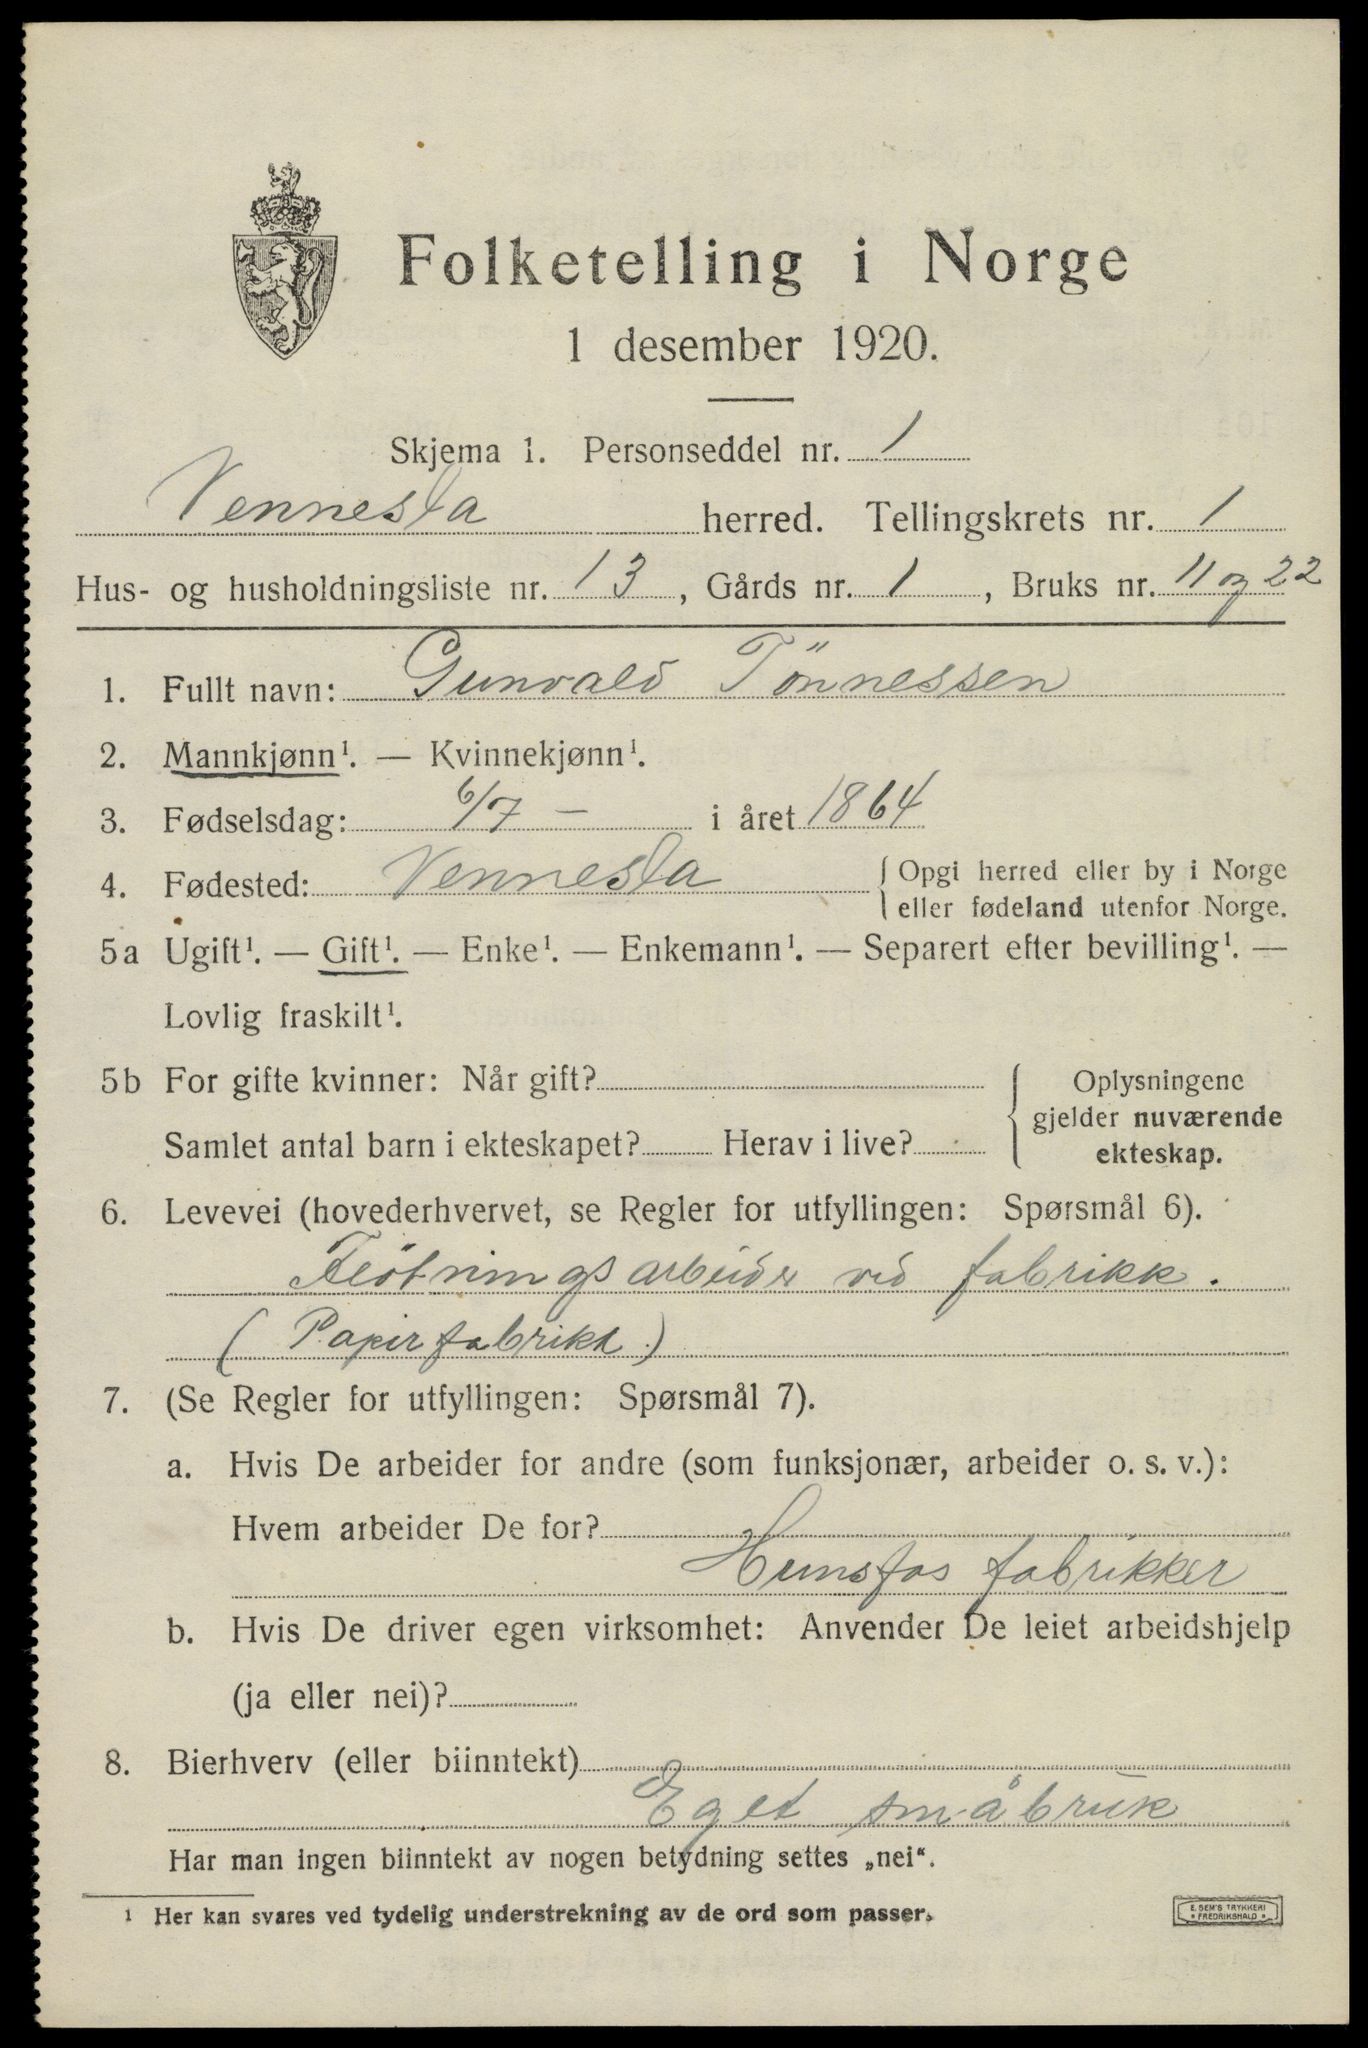 Folketelling i Norge
1 desember 1920.
Skjema 1. Personseddel nr. 1
Vennesla herred. Tellingskrets nr. 1
Hus- og husholdningsliste nr. 13, Gårds nr. 1, Bruks nr. 11 og 22
1. Fullt navn: Gunvald Tönnessen
2. Mannkjønn¹. — Kvinnekjønn¹.
3. Fødselsdag: 6/7 — i året 1864
4. Fødested: Vennesla { Opgi herred eller by i Norge
eller fødeland utenfor Norge.
5a Ugift¹. — Gift¹. — Enke¹. — Enkemann¹. — Separert efter bevilling¹. —
Lovlig fraskilt¹.
5b For gifte kvinner: Når gift?
Samlet antal barn i ekteskapet? Herav i live?
Oplysningene
gjelder nuværende
ekteskap.
6. Levevei (hovederhvervet, se Regler for utfyllingen: Spørsmål 6).
Flötningsarbeider ved fabrikk.
(Papirfabrikk)
7. (Se Regler for utfyllingen: Spørsmål 7).
a. Hvis De arbeider for andre (som funksjonær, arbeider o. s. v.):
Hvem arbeider De for?
Hunsfos fabrikker
b. Hvis De driver egen virksomhet: Anvender De leiet arbeidshjelp
(ja eller nei)?
8. Bierhverv (eller biinntekt)
Eget småbruk
Har man ingen biinntekt av nogen betydning settes „nei“.
¹ Her kan svares ved tydelig understrekning av de ord som passer.
E. SEM'S TRYKKERI
FREDRIKSHALD